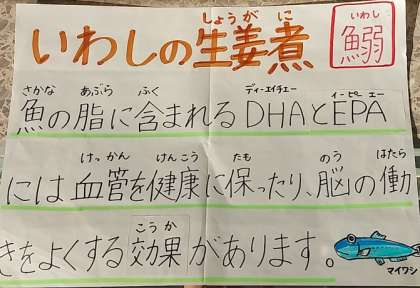 しょうが に
いわしの生姜煮
いわし
鰯
さかな あぶら ふく ディーエイチエー イーピーエー
魚の脂に含まれるDHAとEPA
けっかん けんこう たも のう はたら
には血管を健康に保ったり、脳の働
こうか
きをよくする効果があります。
マイワシ